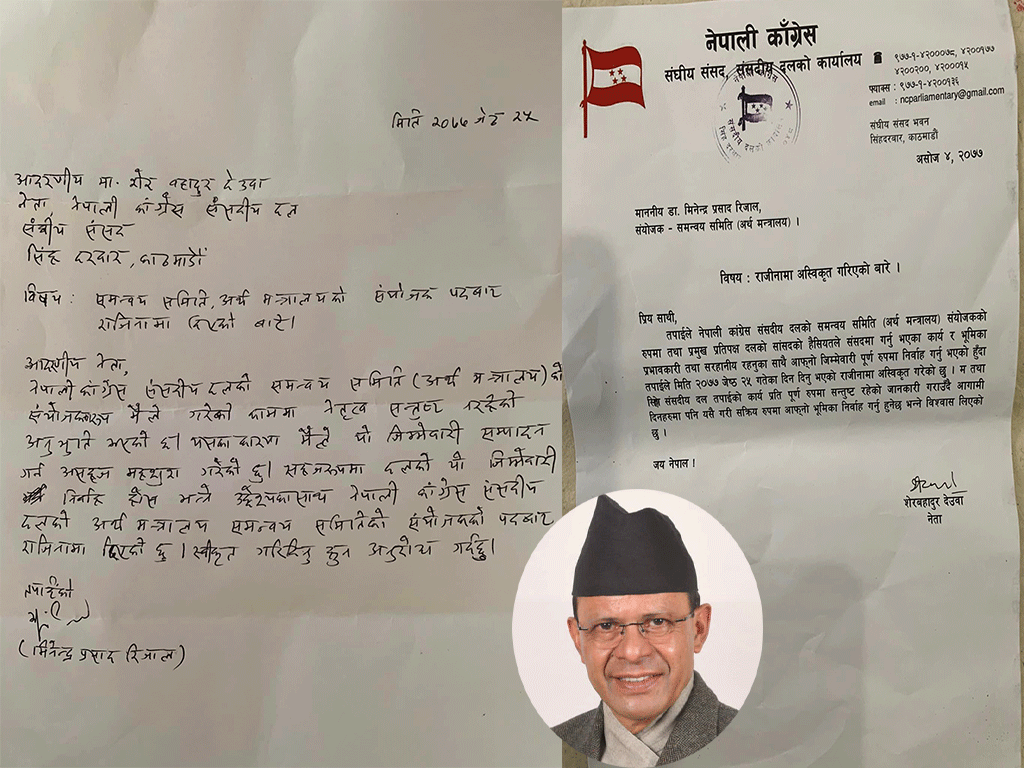 मिति २०७७ जेठ २५
आदरणीय मा. शेर बहादुर देउवा
नेता, नेपाली कांग्रेस संसदीय दल
संघीय संसद
सिंह दरवार, काठमाडौं
विषय : समन्वय समिति, अर्थ मन्त्रालयको संयोजक पदबाट
राजिनामा दिएको बारे।
आदरणीय नेता,
नेपाली कांग्रेस संसदीय दलको समन्वय समिति (अर्थ मन्त्रालय) को
संयोजकका रूपमा मैले गरेको काममा नेतृत्व सन्तुष्ट नरहेको
अनुभूति भएको छ। यसका कारण मैले यो जिम्मेवारी सम्पादन
गर्न असहज महशुश गरेको छु। सहजरूपमा दलको यो जिम्मेवारी
निर्वाह होस भन्ने उद्देश्यका साथ नेपाली कांग्रेस संसदीय
दलको अर्थ मन्त्रालय समन्वय समितिको संयोजकको पदबाट
राजिनामा दिएको छु। स्वीकृत गरिदिनु हुन अनुरोध गर्दछु।
तपाईको
(मिनेन्द्र प्रसाद रिजाल)
नेपाली काँग्रेस
संघीय संसद, संसदीय दलको कार्यालय
९७७-१-४२०००७८, ४२००१७७
४२००२००, ४२०००१५
फ्याक्स : ९७७-१-४२००१३६
email : ncparliamentary@gmail.com
संघीय संसद भवन
सिंहदरवार, काठमाडौं
असोज ४, २०७७
माननीय डा. मिनेन्द्र प्रसाद रिजाल,
संयोजक - समन्वय समिति (अर्थ मन्त्रालय) ।
विषय : राजीनामा अस्विकृत गरिएको बारे ।
प्रिय साथी,
तपाईले नेपाली कांग्रेस संसदीय दलको समन्वय समिति (अर्थ मन्त्रालय) संयोजकको
रुपमा तथा प्रमुख प्रतिपक्ष दलको सांसदको हैसियतले संसदमा गर्नु भएका कार्य र भूमिका
प्रभावकारी तथा सरहानीय रहनुका साथै आफ्नो जिम्मेवारी पूर्ण रुपमा निर्वाह गर्नु भएको हुँदा
तपाईले मिति २०७७ जेष्ठ २५ गतेका दिन दिनु भएको राजीनामा अस्विकृत गरेको छु । म तथा
संसदीय दल तपाईको कार्य प्रति पूर्ण रुपमा सन्तुष्ट रहेको जानकारी गराउँदै आगामी
दिनहरुमा पनि यसै गरी सक्रिय रुपमा आफ्नो भूमिका निर्वाह गर्नु हुनेछ भन्ने विश्वास लिएको
छु ।
जय नेपाल ।
शेरबहादुर देउवा
नेता